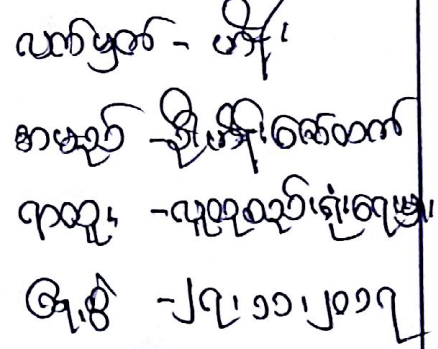 လက်မှတ် - ဟိန်း
အမည် - ဦးဟိန်းဇော်ထက်
ရာထူး - လူထုစည်းရုံးရေးမှူး
ရက်စွဲ - ၂၇၊ ၁၁၊ ၂၀၁၇